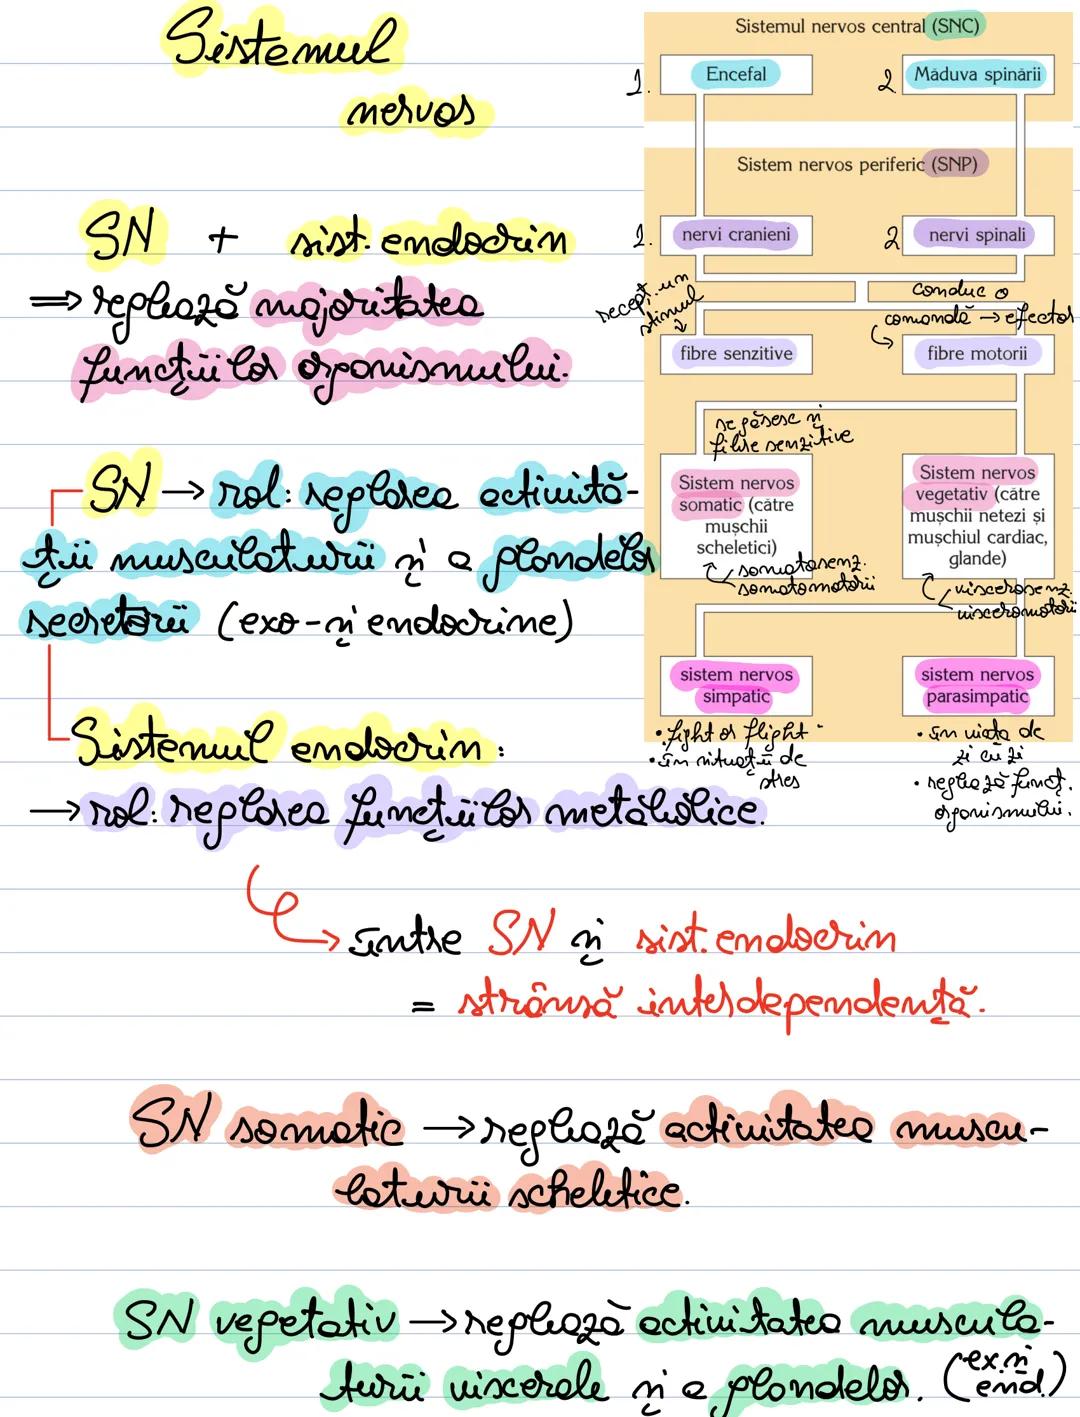 Sistemul
nervos
SN + sist. endocrin
⇒ reglează majoritatea
funcțiilor organismului.
SN → rol: reglarea activită-
ții musculaturii și a glandelor
secretorii (exo- și endocrine)
Sistemul endocrin:
→ rol: reglarea funcțiilor metabolice.
între SN și sist. endocrin
= strânsă interdependență.
SN somatic → reglează activitatea muscu-
laturii scheletice.
SN vegetativ → reglează activitatea muscula-
turii viscerale și a glandelor. (ex. și
end.)
Sistemul nervos central (SNC)
1. Encefal
2. Măduva spinării
Sistem nervos periferic (SNP)
1. nervi cranieni
2 nervi spinali
recepț. un
stimul
conduc o
comandă → efector
fibre senzitive
fibre motorii
se găsesc și
fibre senzitive
Sistem nervos
somatic (către
mușchii
scheletici)
somatosenz.
somatomotorii
Sistem nervos
vegetativ (către
mușchii netezi și
mușchiul cardiac,
glande)
viscerosenz.
visceromotorii
sistem nervos
simpatic
• fight or flight
• în situații de
stres
sistem nervos
parasimpatic
• în viața de
zi cu zi
• reglează funcț.
organismului.